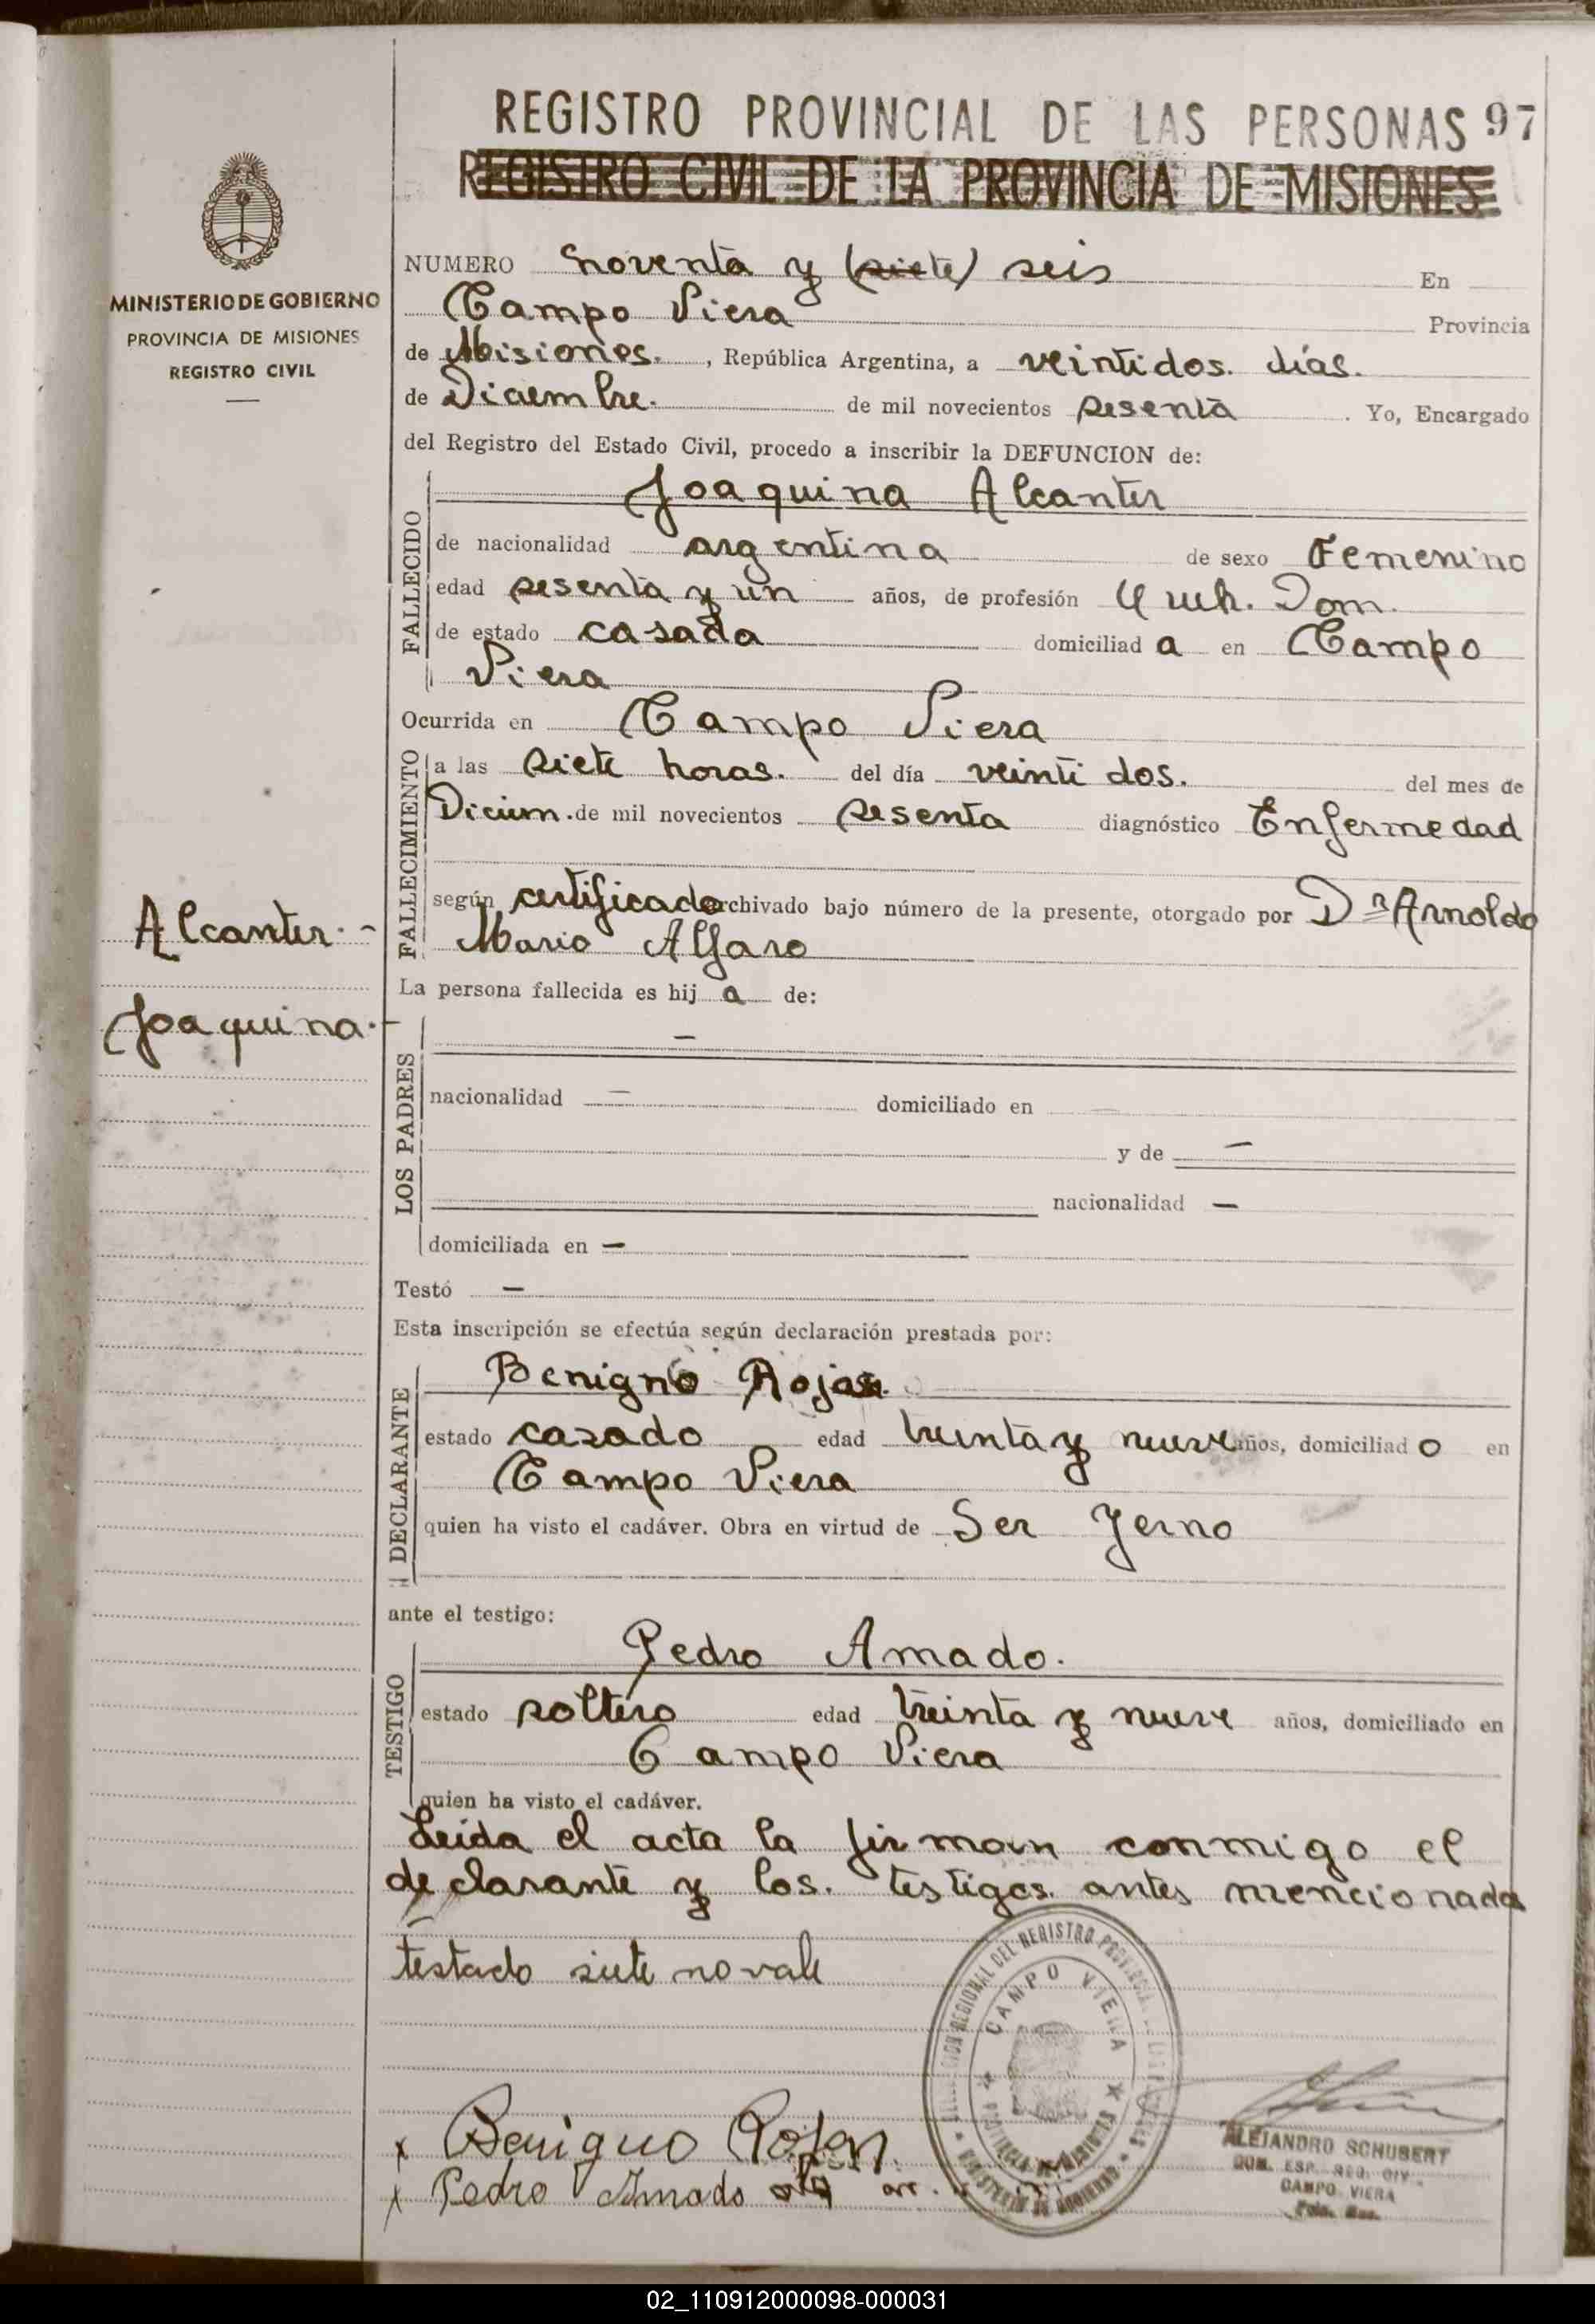 REGISTRO PROVINCIAL DE LAS PERSONAS 97
REGISTRO CIVIL DE LA PROVINCIA DE MISIONES
MINISTERIO DE GOBIERNO
PROVINCIA DE MISIONES
REGISTRO CIVIL
NUMERO noventa y (siete) seis En
Campo Viera Provincia
de Misiones. , República Argentina, a veintidos. días.
de Diciembre. de mil novecientos sesenta . Yo, Encargado
del Registro del Estado Civil, procedo a inscribir la DEFUNCION de:
FALLECIDO
Joaquina Alcanter
de nacionalidad argentina de sexo Femenino
edad sesenta y un años, de profesión Queh. Dom.
de estado casada domiciliad a en Campo
Viera
Ocurrida en Campo Viera
FALLECIMIENTO
a las siete horas. del día veinti dos. del mes de
Diciem. de mil novecientos sesenta diagnóstico Enfermedad
según certificado archivado bajo número de la presente, otorgado por Dr Arnoldo
Mario Alfaro
Alcanter. -
Joaquina. -
La persona fallecida es hij a de:
LOS PADRES
—
nacionalidad — domiciliado en —
y de —
nacionalidad —
domiciliada en —
Testó —
Esta inscripción se efectúa según declaración prestada por:
DECLARANTE
Benigno Rojas.
estado casado edad treinta y nueve años, domiciliad o en
Campo Viera
quien ha visto el cadáver. Obra en virtud de Ser Yerno
ante el testigo:
TESTIGO
Pedro Amado.
estado soltero edad treinta y nueve años, domiciliado en
Campo Viera
quien ha visto el cadáver.
Leida el acta la firman conmigo el
declarante y los. testigos. antes mencionada
testado siete no vale
CAMPO VIERA
x Benigno Rojas
x Pedro Amado
ALEJANDRO SCHUBERT
CAMPO VIERA
02_110912000098-000031